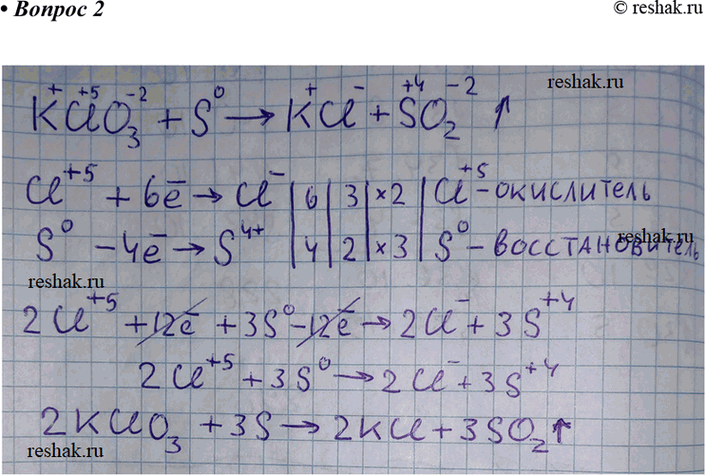 • Вопрос 2 © reshak.ru
reshak.ru
K⁺Cl⁺⁵O₃⁻² + S⁰ → K⁺Cl⁻ + S⁺⁴O₂⁻² ↑
Cl⁺⁵ + 6ē → Cl⁻ | 6 | 3 | ×2 | Cl⁺⁵ - окислитель
S⁰ - 4ē → S⁴⁺ | 4 | 2 | ×3 | S⁰ - восстановитель
reshak.ru
reshak.ru
2Cl⁺⁵ + 12ē + 3S⁰ - 12ē → 2Cl⁻ + 3S⁺⁴
2Cl⁺⁵ + 3S⁰ → 2Cl⁻ + 3S⁺⁴
2KClO₃ + 3S → 2KCl + 3SO₂↑
reshak.ru